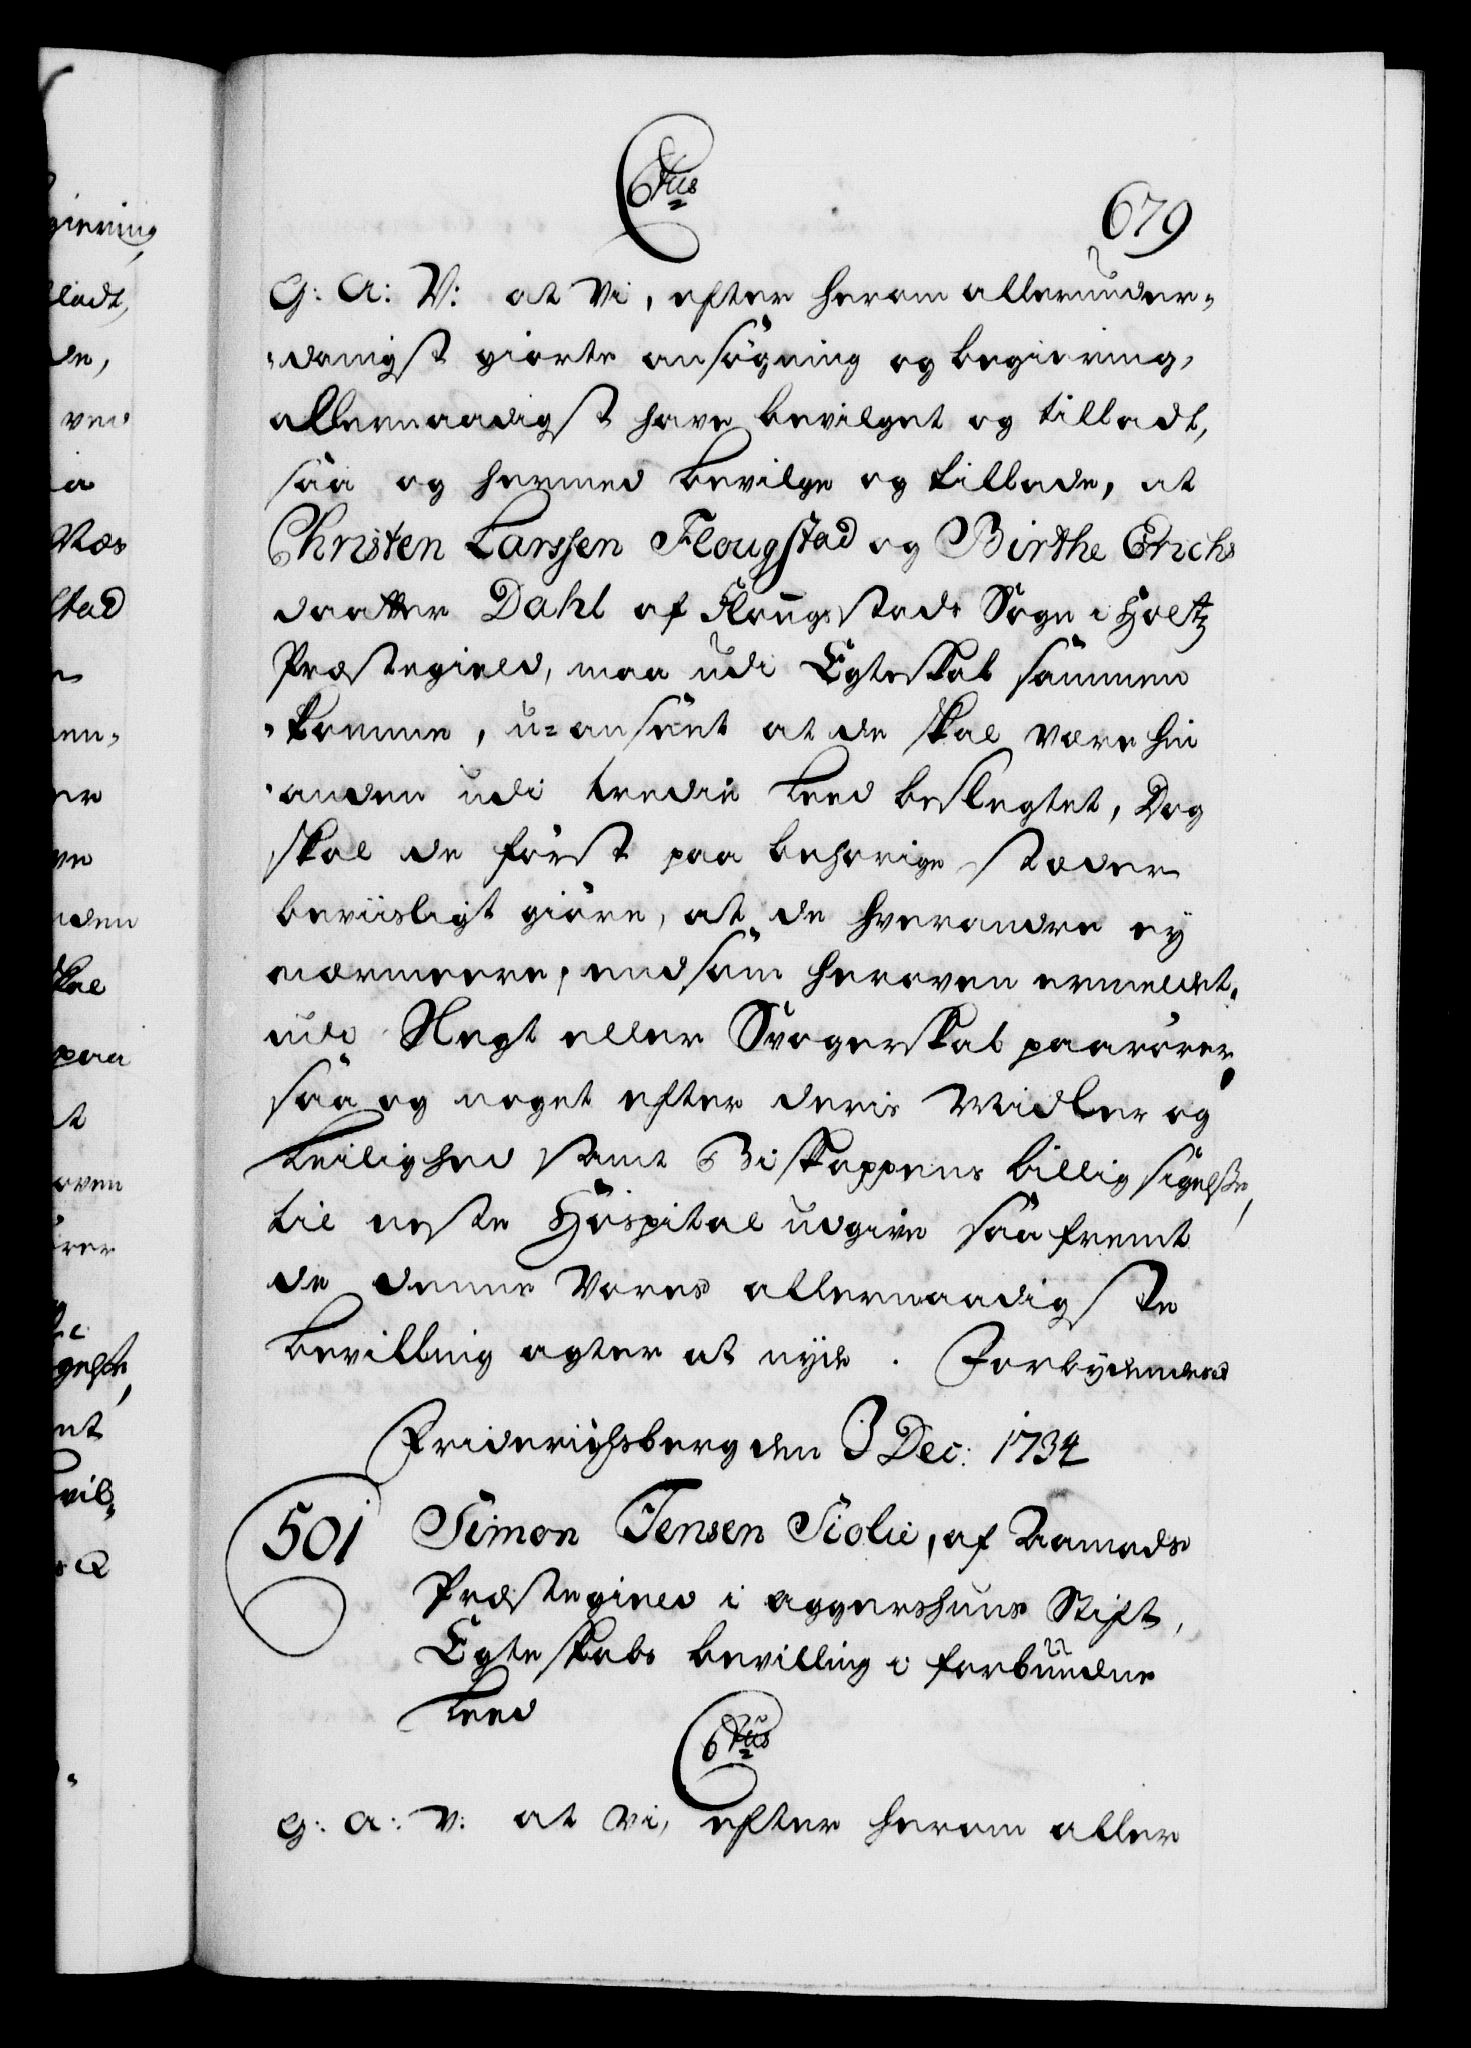 6tus
679
G: A: V: at Vi, efter herom allerunder-
-danigst giorte ansøgning og begiering,
allernaadigst have bevilget og tilladt,
saa og hermed bevilge og tillade, at
Christen Larssen Flougstad og Birthe Erichs
daatter Dahl af Flougstads Sogn i Holtz
Præstegield, maa udi Egteskab sammen
-komme, u-anseet at de skal være hin
-anden udi tredie Leed beslegtet, Dog
skal de først paa behørige stæder
beviisligt giøre, at de hverandre ey
nærmeere, end som heroven ermeldt.
udi Slegt eller Svogerskab paarører,
saa og noget efter deris Midler og
Leilighed samt Biskoppens billig sigelse,
til neste Hospital udgive saafremt
de denne Vores allernaadigste
bevilling agter at nyde. Forbydendes
Friderichsberg den 3 Dec: 1734
501 Simon Jensen Siolie, af Aamods
Præstegield i aggershuus Stift,
Egteskabs bevilling i forbundne
Leed
6tus
G: A: V: at Vi, efter herom aller
giering,
ladt,
de,
ved
ia
Næs
stad
en-
er
ve
nden
skal
paa
et
oven
ører
gelse,
nt
vil-